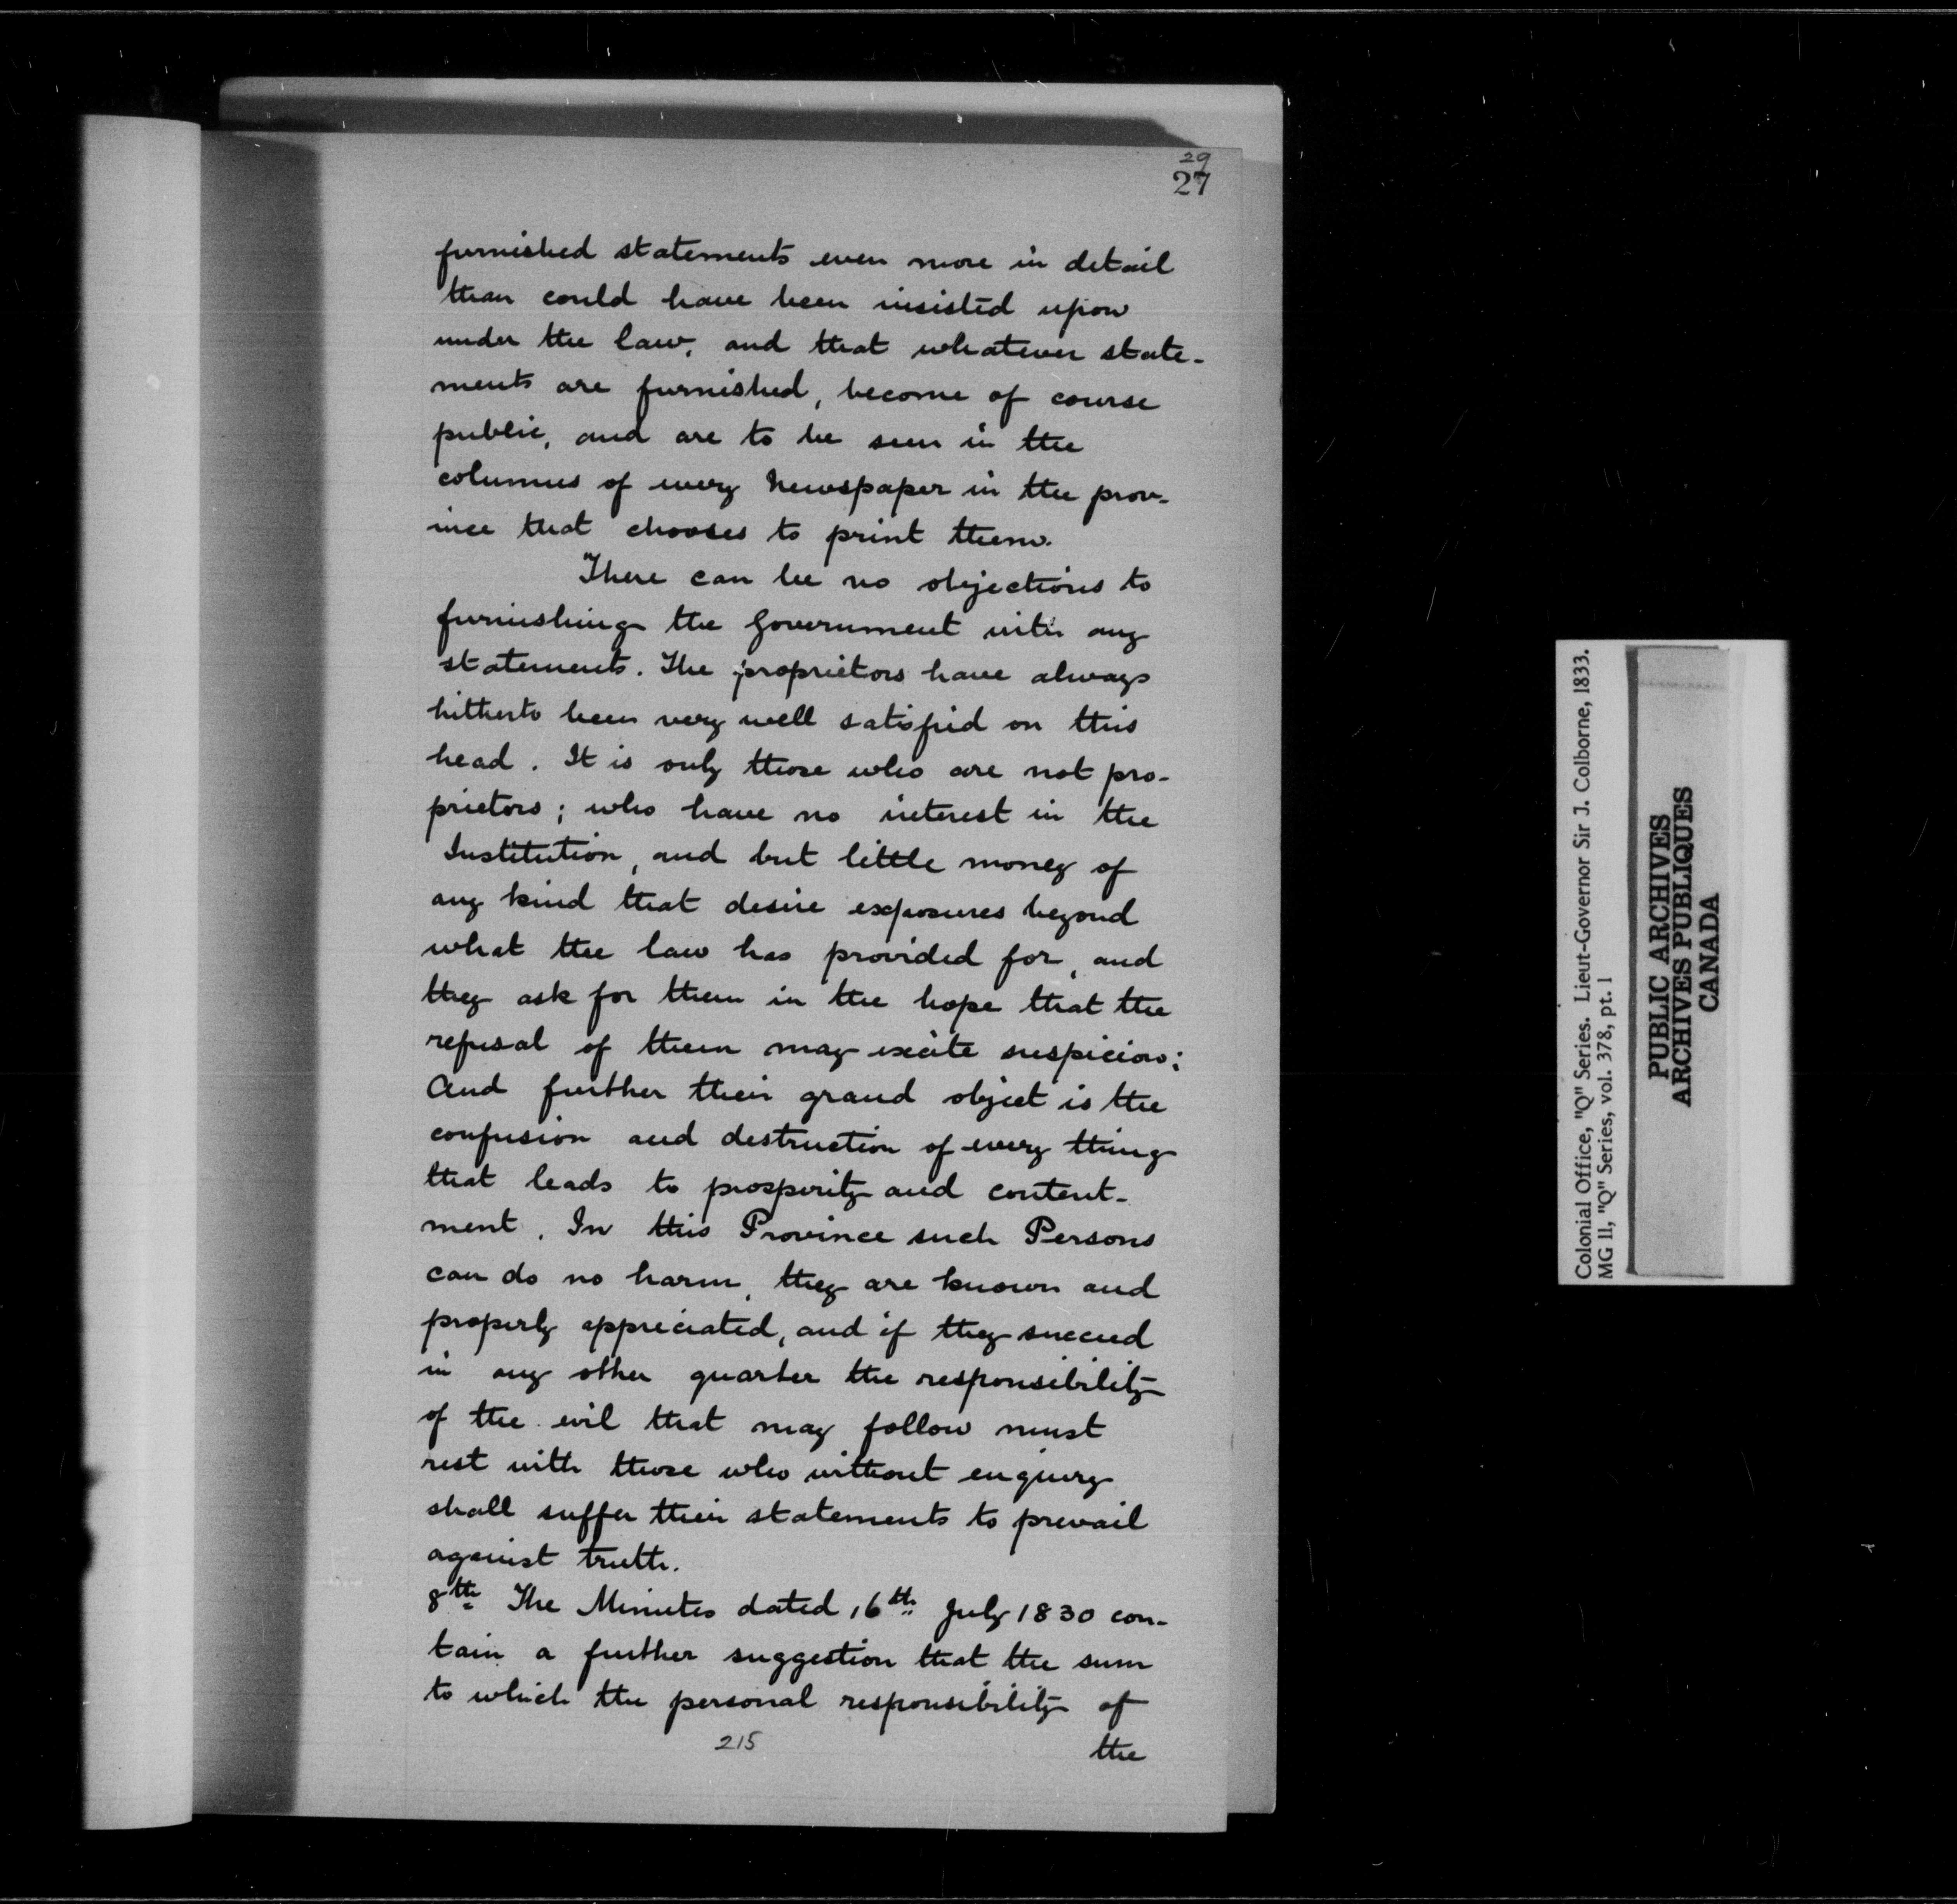 29
27
furnished statements even more in detail
than could have been insisted upon
under the law, and that whatever state-
ments are furnished, become of course
public, and are to be seen in the
columns of every Newspaper in the prov-
ince that chooses to print them.
There can be no objections to
furnishing the Government with any
statements. The proprietors have always
hitherto been very well satisfied on this
head. It is only those who are not pro-
prietors; who have no interest in the
Institution, and but little money of
any kind that desire exposures beyond
what the law has provided for, and
they ask for them in the hope that the
refusal of them may excite suspicion:
And further their grand object is the
confusion and destruction of every thing
that leads to prosperity and content-
ment. In this Province such Persons
can do no harm, they are known and
properly appreciated, and if they succeed
in any other quarter the responsibility
of the evil that may follow must
rest with those who without enquiry
shall suffer their statements to prevail
against truth.
8th The Minutes dated 16th July 1830 con-
tain a further suggestion that the sum
to which the personal responsibility of
215
the
Colonial Office, "Q" Series. Lieut-Governor Sir J. Colborne, 1833.
MG 11, "Q" Series, vol. 378, pt. 1
PUBLIC ARCHIVES
ARCHIVES PUBLIQUES
CANADA